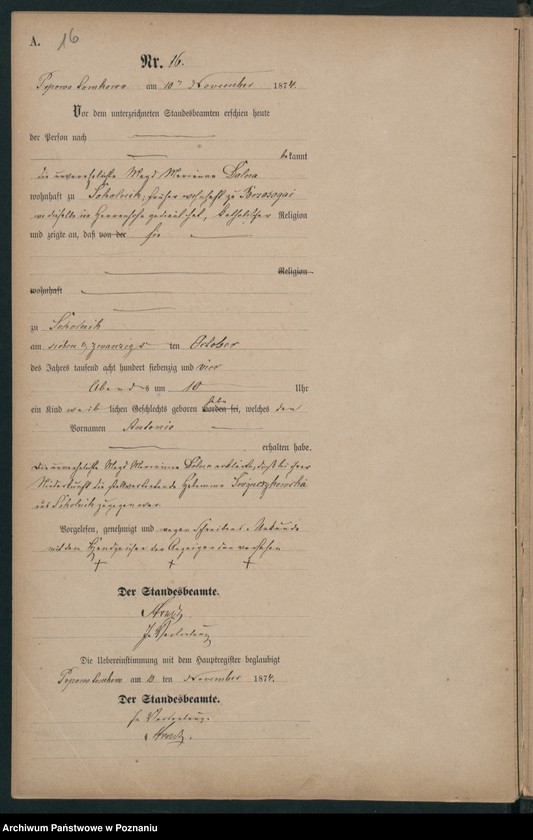 A. 16
Nr. 16.
Popowo Tomkowo am 10ten November 1874.
Vor dem unterzeichneten Standesbeamten erschien heute
der Person nach
bekannt
die unverehelichte Magd Marianna
wohnhaft zu Sokolnik, früher wohnhaft zu
katholischer Religion
und zeigte an, daß von der sie
Religion
wohnhaft
zu Sokolnik
am sieben & zwanzigs ten October
des Jahres tausend acht hundert siebenzig und vier
Abends um 10 Uhr
ein Kind weib lichen Geschlechts geboren worden sei, habe welches den
Vornamen Antonie
erhalten habe.
Die unverehelichte Magd Marianna erklärte, daß bei ihrer
Niederkunft die stellvertretende Hebamme
aus Sokolnik zugegen war.
Vorgelesen, genehmigt und wegen Schreibens Unkunde
mit dem Handzeichen der Anzeigenden versehen
+ + +
Der Standesbeamte.
In Vertretung
Die Uebereinstimmung mit dem Hauptregister beglaubigt
Popowo Tomkowo am 10 ten November 1874.
Der Standesbeamte.
In Vertretung.
Archiwum Państwowe w Poznaniu